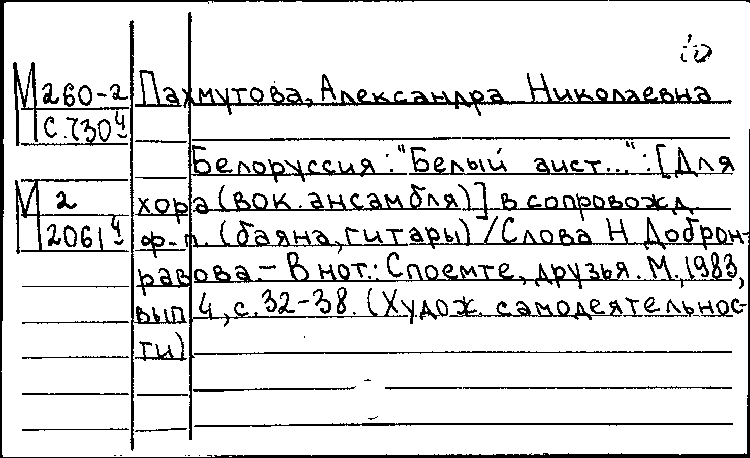 10
М 260-2 Пахмутова, Александра Николаевна
С.730ч
Белоруссия: "Белый аист...": [Для
М 2 хора (вок. ансамбля)] в сопровожд.
2061ч ф-п. (баяна, гитары) / Слова Н. Доброн-
равова. – В нот.: Споемте, друзья. М., 1983,
вып. 4, с. 32–38. (Худож. самодеятельнос-
ти)